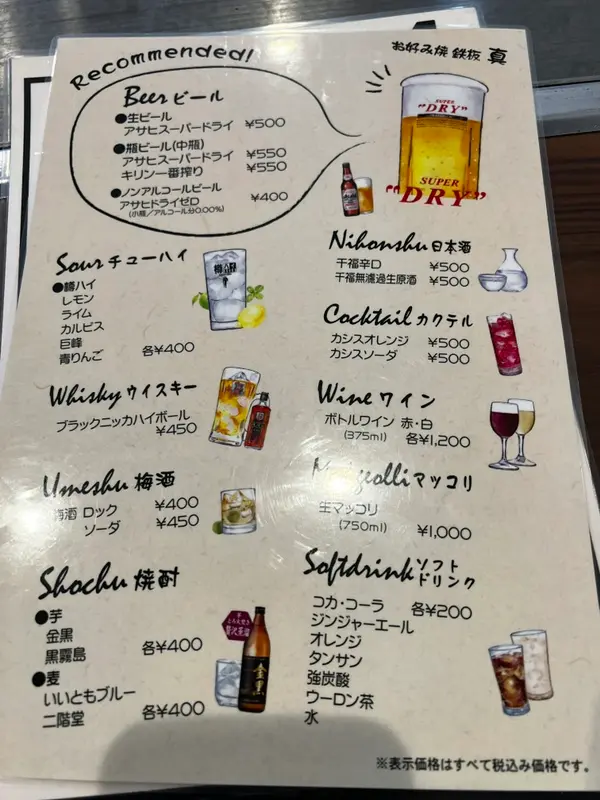 お好み焼 鉄板 真
Recommended!
Beer ビール
●生ビール
アサヒスーパードライ ¥500
●瓶ビール(中瓶)
アサヒスーパードライ ¥550
キリン一番搾り ¥550
●ノンアルコールビール
アサヒドライゼロ ¥400
(小瓶/アルコール分0.00%)
SUPER
"DRY"
SUPER
"DRY"
Sour チューハイ
●樽ハイ
レモン
ライム
カルピス
巨峰
青りんご 各¥400
Whisky ウイスキー
ブラックニッカハイボール
¥450
Umeshu 梅酒
梅酒 ロック ¥400
ソーダ ¥450
Shochu 焼酎
●芋
金黒
黒霧島 各¥400
●麦
いいともブルー
二階堂 各¥400
贅沢茶濃
金黒
Nihonshu 日本酒
千福辛口 ¥500
千福無濾過生原酒 ¥500
Cocktail カクテル
カシスオレンジ ¥500
カシスソーダ ¥500
Wine ワイン
ボトルワイン 赤・白
(375ml) 各¥1,200
マッコリ
生マッコリ
(750ml) ¥1,000
Softdrink ソフト
ドリンク
コカ・コーラ 各¥200
ジンジャーエール
オレンジ
タンサン
強炭酸
ウーロン茶
水
※表示価格はすべて税込み価格です。